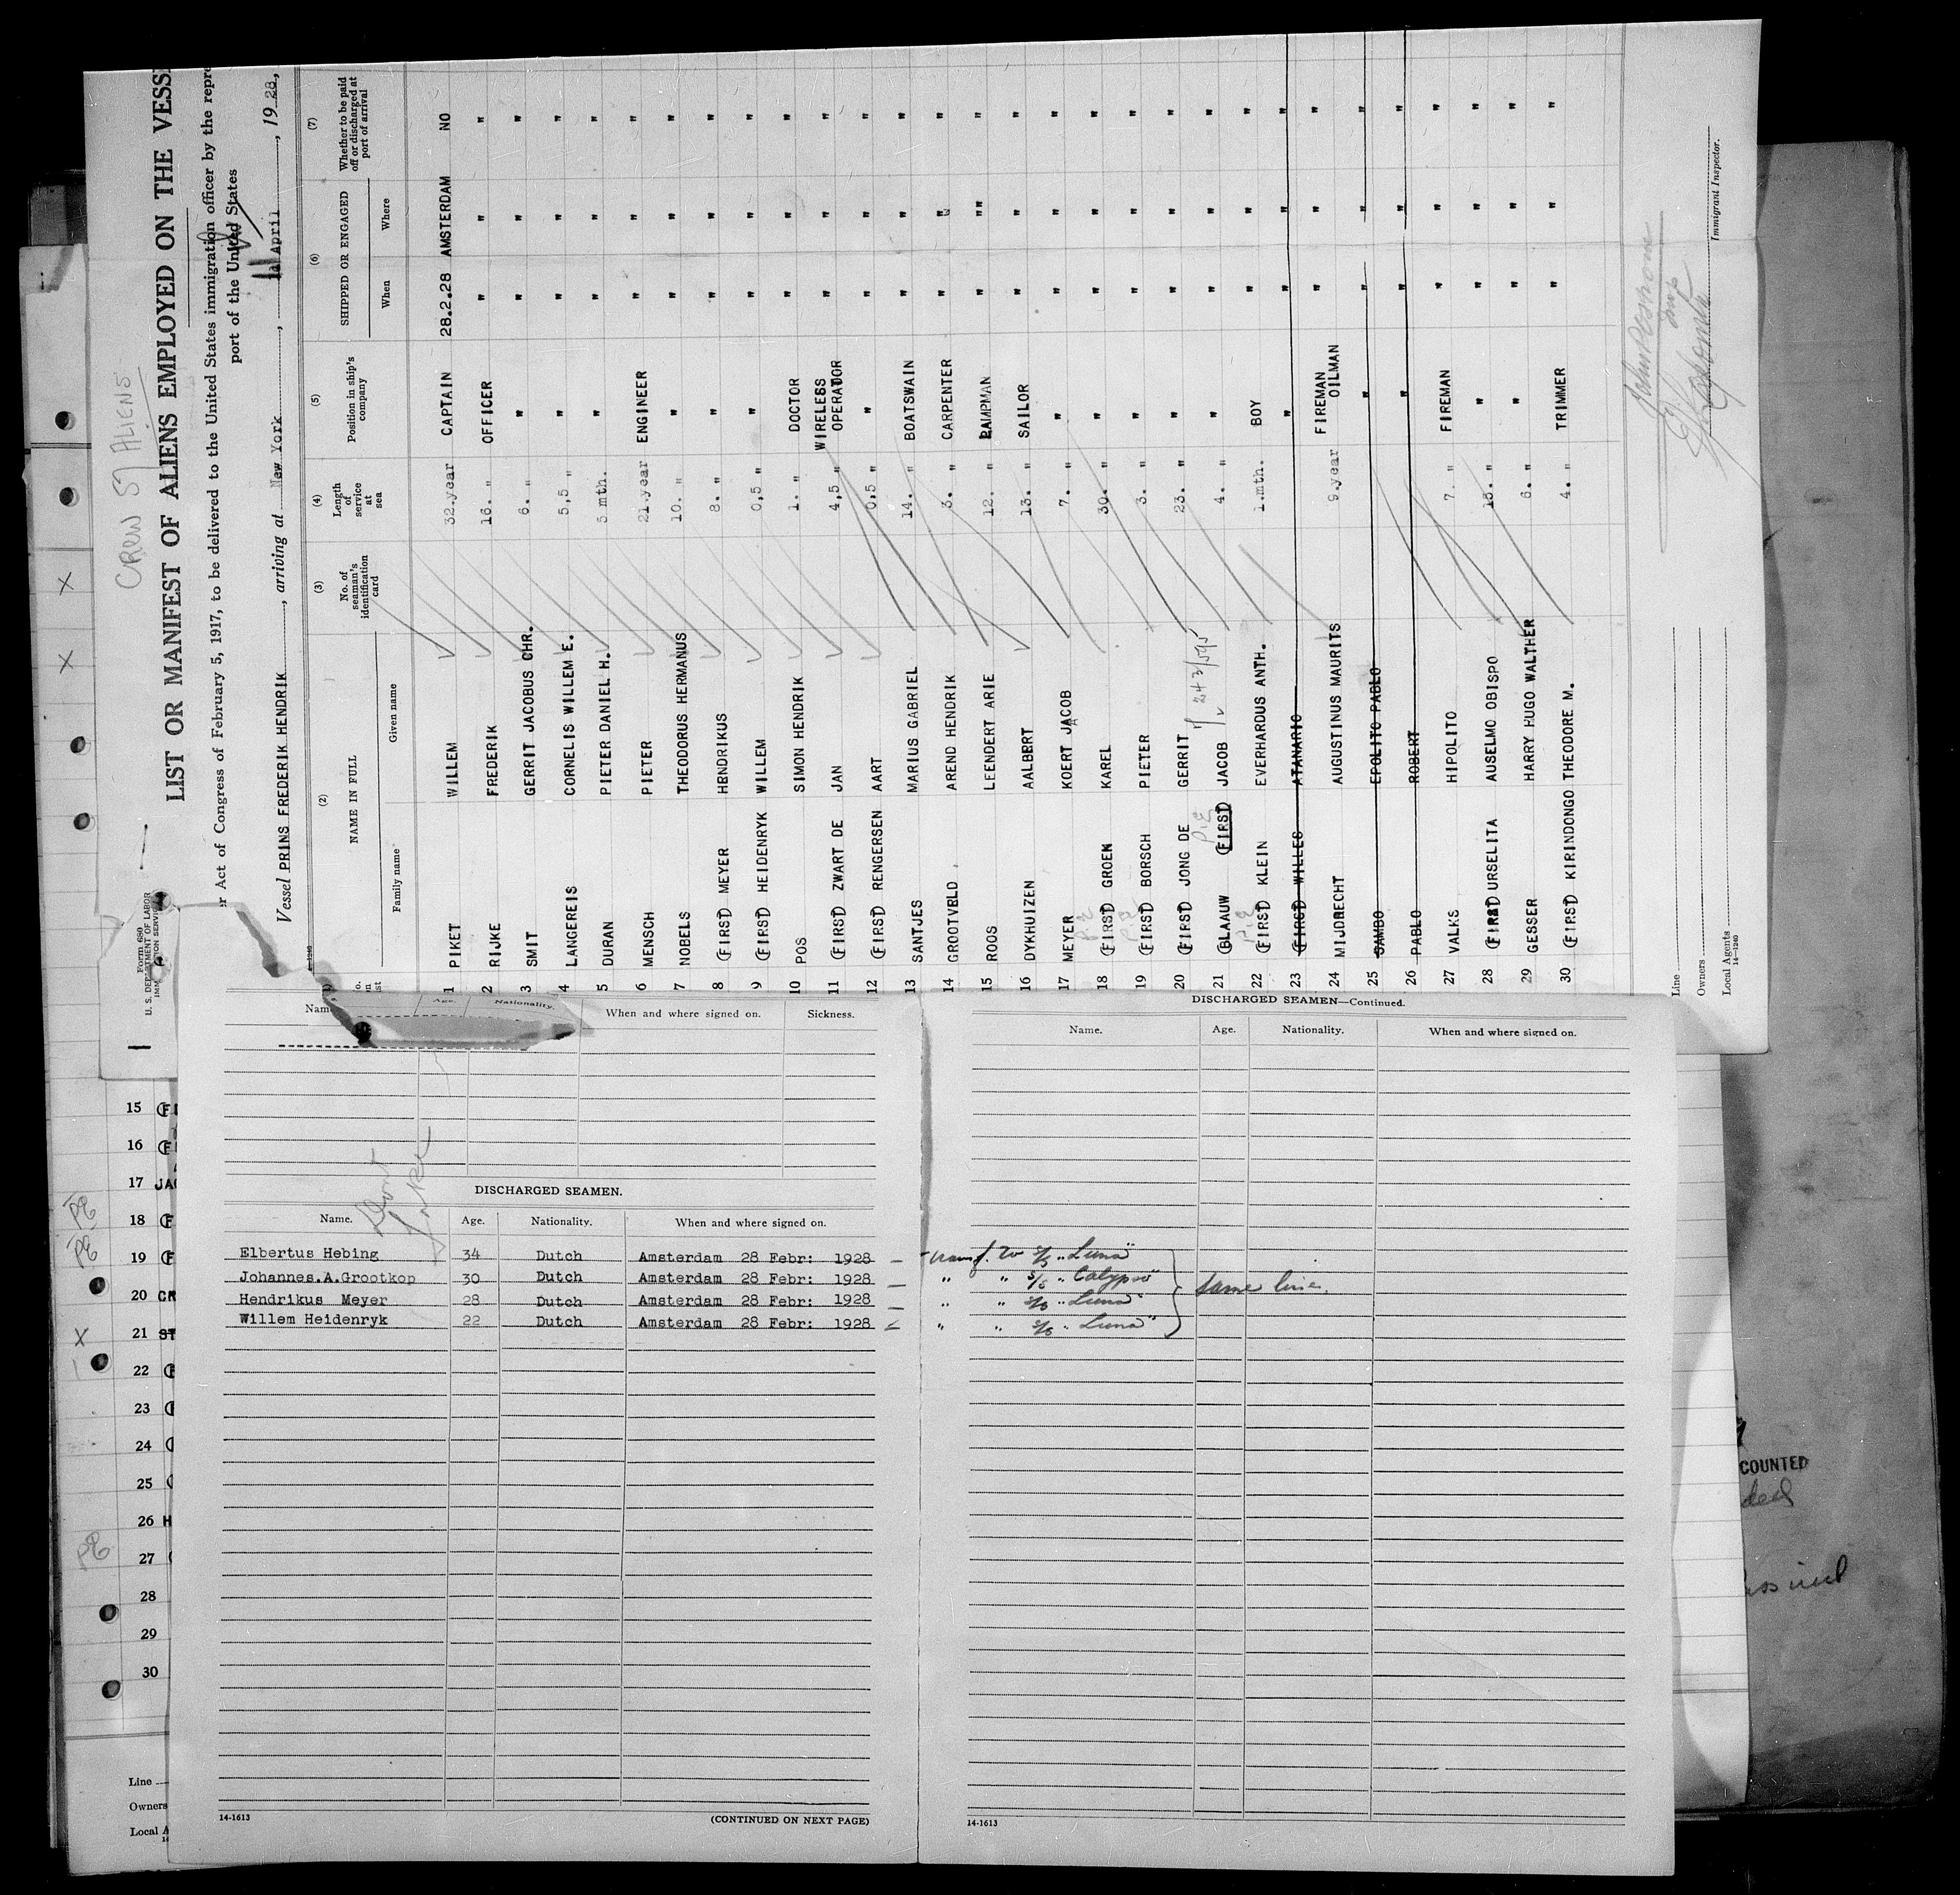 CREW 57 ALIENS
Form 680
U. S. DEPARTMENT OF LABOR
LIST OR MANIFEST OF ALIENS EMPLOYED ON THE VESS
Act of Congress of February 5, 1917, to be delivered to the United States immigration officer by the repre
port of the United States
Vessel PRINS FREDERIK HENDRIK, arriving at New York, 11 April, 1928,
(2) (3) (4) (5) (6) (7)
NAME IN FULL
Family name Given name
No. of seaman's identification card
Length of service at sea
Position in ship's company
SHIPPED OR ENGAGED
When Where
Whether to be paid off or discharged at port of arrival
1 PIKET WILLEM 32.year CAPTAIN 28.2.28 AMSTERDAM NO
2 RIJKE FREDERIK 16. " OFFICER " " "
3 SMIT GERRIT JACOBUS CHR. 6. " " " " "
4 LANGEREIS CORNELIS WILLEM E. 5,5 " " " " "
5 DURAN PIETER DANIEL H. 5 mth. " " " "
6 MENSCH PIETER 21.year ENGINEER " " "
7 NOBELS THEODORUS HERMANUS 10. " " " " "
8 (FIRST) MEYER HENDRIKUS 8. " " " " "
9 (FIRST) HEIDENRYK WILLEM 0,5 " " " " "
10 POS SIMON HENDRIK 1. " DOCTOR " " "
11 (FIRST) ZWART DE JAN 4,5 " WIRELESS OPERATOR " " "
12 (FIRST) RENGERSEN AART 0,5 " " " " "
13 SANTJES MARIUS GABRIEL 14. " BOATSWAIN " " "
14 GROOTVELD AREND HENDRIK 3. " CARPENTER " " "
15 ROOS LEENDERT ARIE 12. " LAMPMAN " " "
16 DYKHUIZEN AALBERT 13. " SAILOR " " "
17 MEYER KOERT JACOB 7. " " " " "
18 (FIRST) GROEN KAREL 30. " " " " "
19 (FIRST) BORSCH PIETER 3. " " " " "
20 (FIRST) JONG DE GERRIT 23. " " " " "
21 BLAAUW (FIRST) JACOB 4. " " " " "
22 (FIRST) KLEIN EVERHARDUS ANTH. 1.mth. BOY " " "
23 (FIRST) WILLES ATANARIO " " " "
24 MIJDRECHT AUGUSTINUS MAURITS 9.year FIREMAN OILMAN " " "
25 SAMBO EPOLITO PABLO " " " "
26 PABLO ROBERT " " " "
27 VALKS HIPOLITO 7. " FIREMAN " " "
28 (FIRST) URSELITA AUSELMO OBISPO 15. " " " " "
29 GESSER HARRY HUGO WALTHER 6. " " " " "
30 (FIRST) KIRINDONGO THEODORE M. 4. " TRIMMER " " "
Line
Owners
Local Agents
14-1240
Immigrant Inspector.
Name Age. Nationality. When and where signed on. Sickness.
DISCHARGED SEAMEN.
Name. Age. Nationality. When and where signed on.
Elbertus Hebing 34 Dutch Amsterdam 28 Febr: 1928 – transf. to s/s "Luna"
Johannes.A.Grootkop 30 Dutch Amsterdam 28 Febr: 1928 – " " s/s "Calypso"
Hendrikus Meyer 28 Dutch Amsterdam 28 Febr: 1928 – " " s/s "Luna"
Willem Heidenryk 22 Dutch Amsterdam 28 Febr: 1928 – " " s/s "Luna"
same line.
14-1613
(CONTINUED ON NEXT PAGE)
DISCHARGED SEAMEN—Continued.
Name. Age. Nationality. When and where signed on.
14-1613
15
16
17 JA
18
19
20 CR
21 ST
22
23
24
25
26 H
27
28
29
30
Line
Owners
Local A
COUNTED